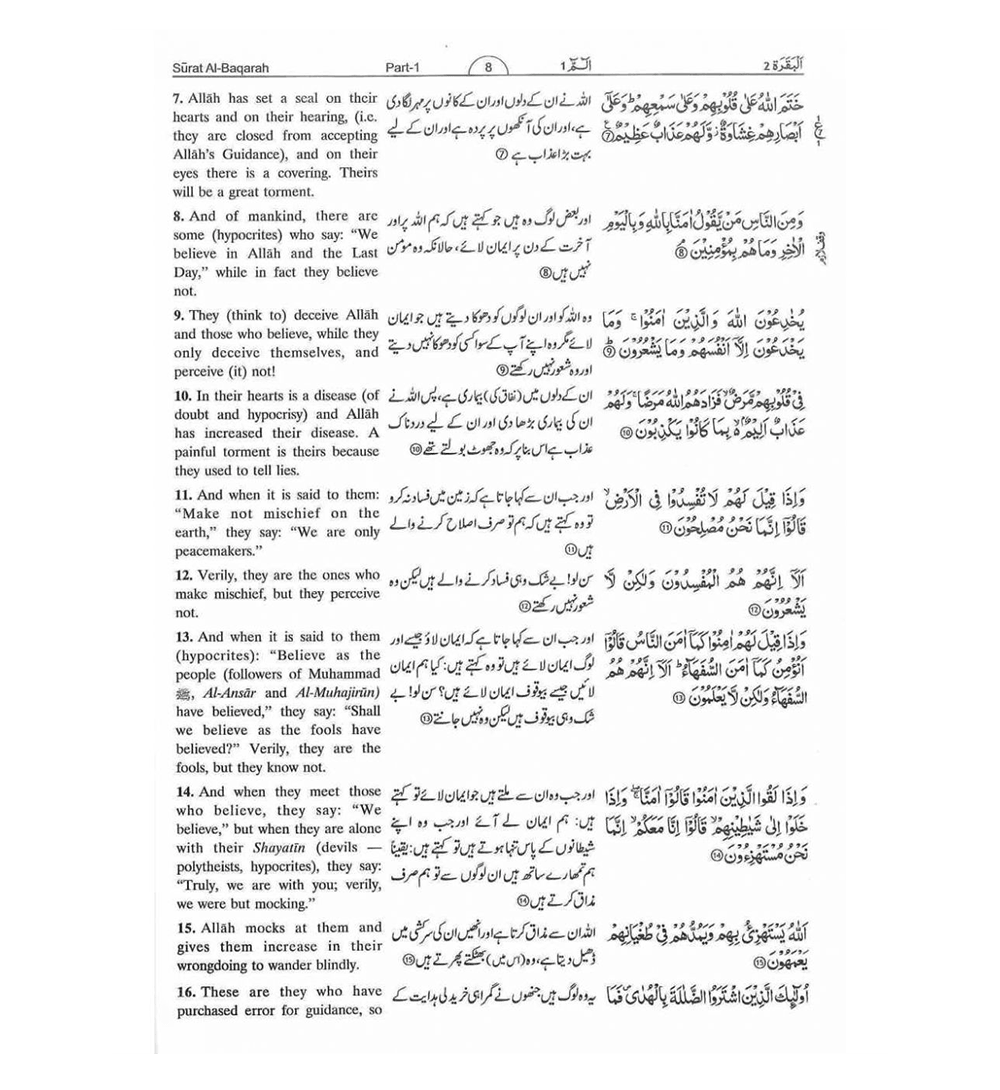 Sūrat Al-Baqarah
Part-1
8
الٓمّٓ ١
اَلْبَقَرَة ٢
7. Allāh has set a seal on their
hearts and on their hearing, (i.e.
they are closed from accepting
Allāh's Guidance), and on their
eyes there is a covering. Theirs
will be a great torment.
8. And of mankind, there are
some (hypocrites) who say: “We
believe in Allāh and the Last
Day,” while in fact they believe
not.
9. They (think to) deceive Allāh
and those who believe, while they
only deceive themselves, and
perceive (it) not!
10. In their hearts is a disease (of
doubt and hypocrisy) and Allāh
has increased their disease. A
painful torment is theirs because
they used to tell lies.
11. And when it is said to them:
“Make not mischief on the
earth,” they say: “We are only
peacemakers.”
12. Verily, they are the ones who
make mischief, but they perceive
not.
13. And when it is said to them
(hypocrites): “Believe as the
people (followers of Muhammad
ﷺ, Al-Ansār and Al-Muhajirūn)
have believed,” they say: “Shall
we believe as the fools have
believed?” Verily, they are the
fools, but they know not.
14. And when they meet those
who believe, they say: “We
believe,” but when they are alone
with their Shayatīn (devils —
polytheists, hypocrites), they say:
“Truly, we are with you; verily,
we were but mocking.”
15. Allāh mocks at them and
gives them increase in their
wrongdoing to wander blindly.
16. These are they who have
purchased error for guidance, so
اللہ نے ان کے دلوں اور ان کے کانوں پر مہر لگا دی
ہے، اور ان کی آنکھوں پر پردہ ہے اور ان کے لیے
بہت بڑا عذاب ہے ⑦
اور بعض لوگ وہ ہیں جو کہتے ہیں کہ ہم اللہ پر اور
آخرت کے دن پر ایمان لائے، حالانکہ وہ مومن
نہیں ہیں ⑧
وہ اللہ کو اور ان لوگوں کو دھوکا دیتے ہیں جو ایمان
لائے مگر وہ اپنے آپ کے سوا کسی کو دھوکا نہیں دیتے
اور وہ شعور نہیں رکھتے ⑨
ان کے دلوں میں (نفاق کی) بیماری ہے، پس اللہ نے
ان کی بیماری بڑھا دی اور ان کے لیے دردناک
عذاب ہے اس بنا پر کہ وہ جھوٹ بولتے تھے ⑩
اور جب ان سے کہا جاتا ہے کہ زمین میں فساد نہ کرو
تو وہ کہتے ہیں کہ ہم تو صرف اصلاح کرنے والے
ہیں ⑪
سن لو! بے شک وہی فساد کرنے والے ہیں لیکن وہ
شعور نہیں رکھتے ⑫
اور جب ان سے کہا جاتا ہے کہ ایمان لاؤ جیسے اور
لوگ ایمان لائے ہیں تو وہ کہتے ہیں: کیا ہم ایمان
لائیں جیسے بیوقوف ایمان لائے ہیں؟ سن لو! بے
شک وہی بیوقوف ہیں لیکن وہ نہیں جانتے ⑬
اور جب وہ ان سے ملتے ہیں جو ایمان لائے تو کہتے
ہیں: ہم ایمان لے آئے اور جب وہ اپنے
شیطانوں کے پاس تنہا ہوتے ہیں تو کہتے ہیں: یقیناً
ہم تمھارے ساتھ ہیں ان لوگوں سے تو ہم صرف
مذاق کرتے ہیں ⑭
اللہ ان سے مذاق کرتا ہے اور انھیں ان کی سرکشی میں
ڈھیل دیتا ہے، وہ (اس میں) بھٹکتے پھرتے ہیں ⑮
یہ وہ لوگ ہیں جنھوں نے گمراہی خرید لی ہدایت کے
خَتَمَ اللّٰهُ عَلٰى قُلُوْبِهِمْ وَعَلٰى سَمْعِهِمْ ؕ وَعَلٰۤى
اَبْصَارِهِمْ غِشَاوَةٌ ؗ وَّلَهُمْ عَذَابٌ عَظِيْمٌ ⑦
وَمِنَ النَّاسِ مَنْ يَّقُوْلُ اٰمَنَّا بِاللّٰهِ وَبِالْيَوْمِ
الْاٰخِرِ وَمَا هُمْ بِمُؤْمِنِيْنَ ⑧
يُخٰدِعُوْنَ اللّٰهَ وَالَّذِيْنَ اٰمَنُوْا ۚ وَمَا
يَخْدَعُوْنَ اِلَّاۤ اَنْفُسَهُمْ وَمَا يَشْعُرُوْنَ ⑨
فِيْ قُلُوْبِهِمْ مَّرَضٌ ۙ فَزَادَهُمُ اللّٰهُ مَرَضًا ۚ وَلَهُمْ
عَذَابٌ اَلِيْمٌۢ ۙ بِمَا كَانُوْا يَكْذِبُوْنَ ⑩
وَاِذَا قِيْلَ لَهُمْ لَا تُفْسِدُوْا فِي الْاَرْضِ ۙ
قَالُوْۤا اِنَّمَا نَحْنُ مُصْلِحُوْنَ ⑪
اَلَاۤ اِنَّهُمْ هُمُ الْمُفْسِدُوْنَ وَلٰكِنْ لَّا
يَشْعُرُوْنَ ⑫
وَاِذَا قِيْلَ لَهُمْ اٰمِنُوْا كَمَاۤ اٰمَنَ النَّاسُ قَالُوْۤا
اَنُؤْمِنُ كَمَاۤ اٰمَنَ السُّفَهَآءُ ؕ اَلَاۤ اِنَّهُمْ هُمُ
السُّفَهَآءُ وَلٰكِنْ لَّا يَعْلَمُوْنَ ⑬
وَاِذَا لَقُوا الَّذِيْنَ اٰمَنُوْا قَالُوْۤا اٰمَنَّا ۖۚ وَاِذَا
خَلَوْا اِلٰى شَيٰطِيْنِهِمْ ۙ قَالُوْۤا اِنَّا مَعَكُمْ ۙ اِنَّمَا
نَحْنُ مُسْتَهْزِءُوْنَ ⑭
اَللّٰهُ يَسْتَهْزِئُ بِهِمْ وَيَمُدُّهُمْ فِيْ طُغْيَانِهِمْ
يَعْمَهُوْنَ ⑮
اُولٰٓئِكَ الَّذِيْنَ اشْتَرَوُا الضَّلٰلَةَ بِالْهُدٰى ۪ فَمَا
وقف لازم